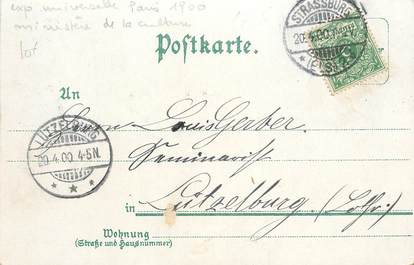 exp universelle Paris 1900
ministère de la culture
lot
Postkarte.
STRASSBURG
20.4.00
(ELS.)
An
Herrn Louis Gerber
Seminarist
LÜTZELBURG
20.4.00. 4-5N.
in Lützelburg (Lothr.)
Wohnung
(Straße und Hausnummer)